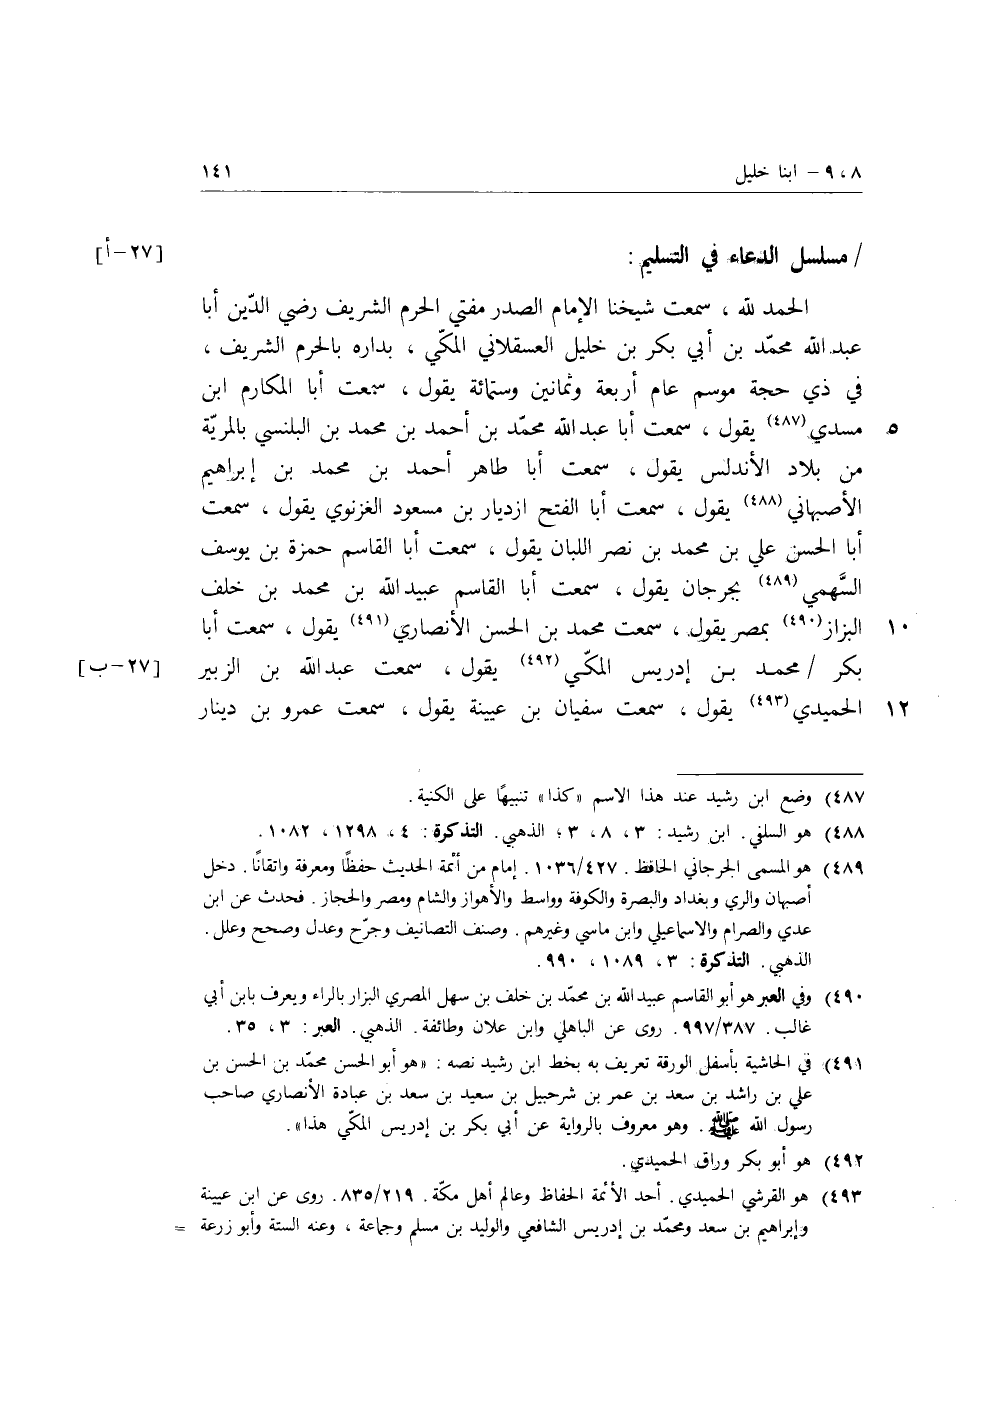 ٨ ، ٩ – ابنا خليل ١٤١
/ مسلسل الدعاء في التسليم : [٢٧–أ]
الحمد لله ، سمعت شيخنا الإمام الصدر مفتي الحرم الشريف رضي الدّين أبا
عبد الله محمّد بن أبي بكر بن خليل العسقلاني المكّي ، بداره بالحرم الشريف ،
في ذي حجة موسم عام أربعة وثمانين وستمائة يقول ، سمعت أبا المكارم ابن
مسدي(٤٨٧) يقول ، سمعت أبا عبد الله محمّد بن أحمد بن محمد بن البلنسي بالمريّة ٥
من بلاد الأندلس يقول ، سمعت أبا طاهر أحمد بن محمد بن إبراهيم
الأصبهاني(٤٨٨) يقول ، سمعت أبا الفتح ازديار بن مسعود الغزنوي يقول ، سمعت
أبا الحسن علي بن محمد بن نصر اللبان يقول ، سمعت أبا القاسم حمزة بن يوسف
السَّهمي(٤٨٩) بجرجان يقول ، سمعت أبا القاسم عبيد الله بن محمد بن خلف
البزاز(٤٩٠) بمصر يقول ، سمعت محمد بن الحسن الأنصاري(٤٩١) يقول ، سمعت أبا ١٠
بكر / محمد بن إدريس المكّي(٤٩٢) يقول ، سمعت عبد الله بن الزبير [٢٧–ب]
الحميدي(٤٩٣) يقول ، سمعت سفيان بن عيينة يقول ، سمعت عمرو بن دينار ١٢
٤٨٧) وضع ابن رشيد عند هذا الاسم «كذا» تنبيهًا على الكنية .
٤٨٨) هو السلفي . ابن رشيد : ٣ ، ٨ ، ٣ ؛ الذهبي . التذكرة : ٤ ، ١٢٩٨ ، ١٠٨٢ .
٤٨٩) هو المسمى الجرجاني الحافظ . ١٠٣٦/٤٢٧ . إمام من أئمّة الحديث حفظًا ومعرفة واتقانًا . دخل
أصبهان والري وبغداد والبصرة والكوفة وواسط والأهواز والشام ومصر والحجاز . فحدث عن ابن
عدي والصرام والاسماعيلي وابن ماسي وغيرهم . وصنف التصانيف وجرّح وعدل وصحح وعلل .
الذهبي . التذكرة : ٣ ، ١٠٨٩ ، ٩٩٠ .
٤٩٠) وفي العبر هو أبو القاسم عبيد الله بن محمّد بن خلف بن سهل المصري البزار بالراء ويعرف بابن أبي
غالب . ٩٩٧/٣٨٧ . روى عن الباهلي وابن علان وطائفة . الذهبي . العبر : ٣ ، ٣٥ .
٤٩١) في الحاشية بأسفل الورقة تعريف به بخط ابن رشيد نصه : «هو أبو الحسن محمّد بن الحسن بن
علي بن راشد بن سعد بن عمر بن شرحبيل بن سعيد بن سعد بن عبادة الأنصاري صاحب
رسول الله ﷺ . وهو معروف بالرواية عن أبي بكر بن إدريس المكّي هذا» .
٤٩٢) هو أبو بكر وراق الحميدي .
٤٩٣) هو القرشي الحميدي . أحد الأئمّة الحفاظ وعالم أهل مكّة . ٨٣٥/٢١٩ . روى عن ابن عيينة
وإبراهيم بن سعد ومحمّد بن إدريس الشافعي والوليد بن مسلم وجماعة ، وعنه الستة وأبو زرعة =